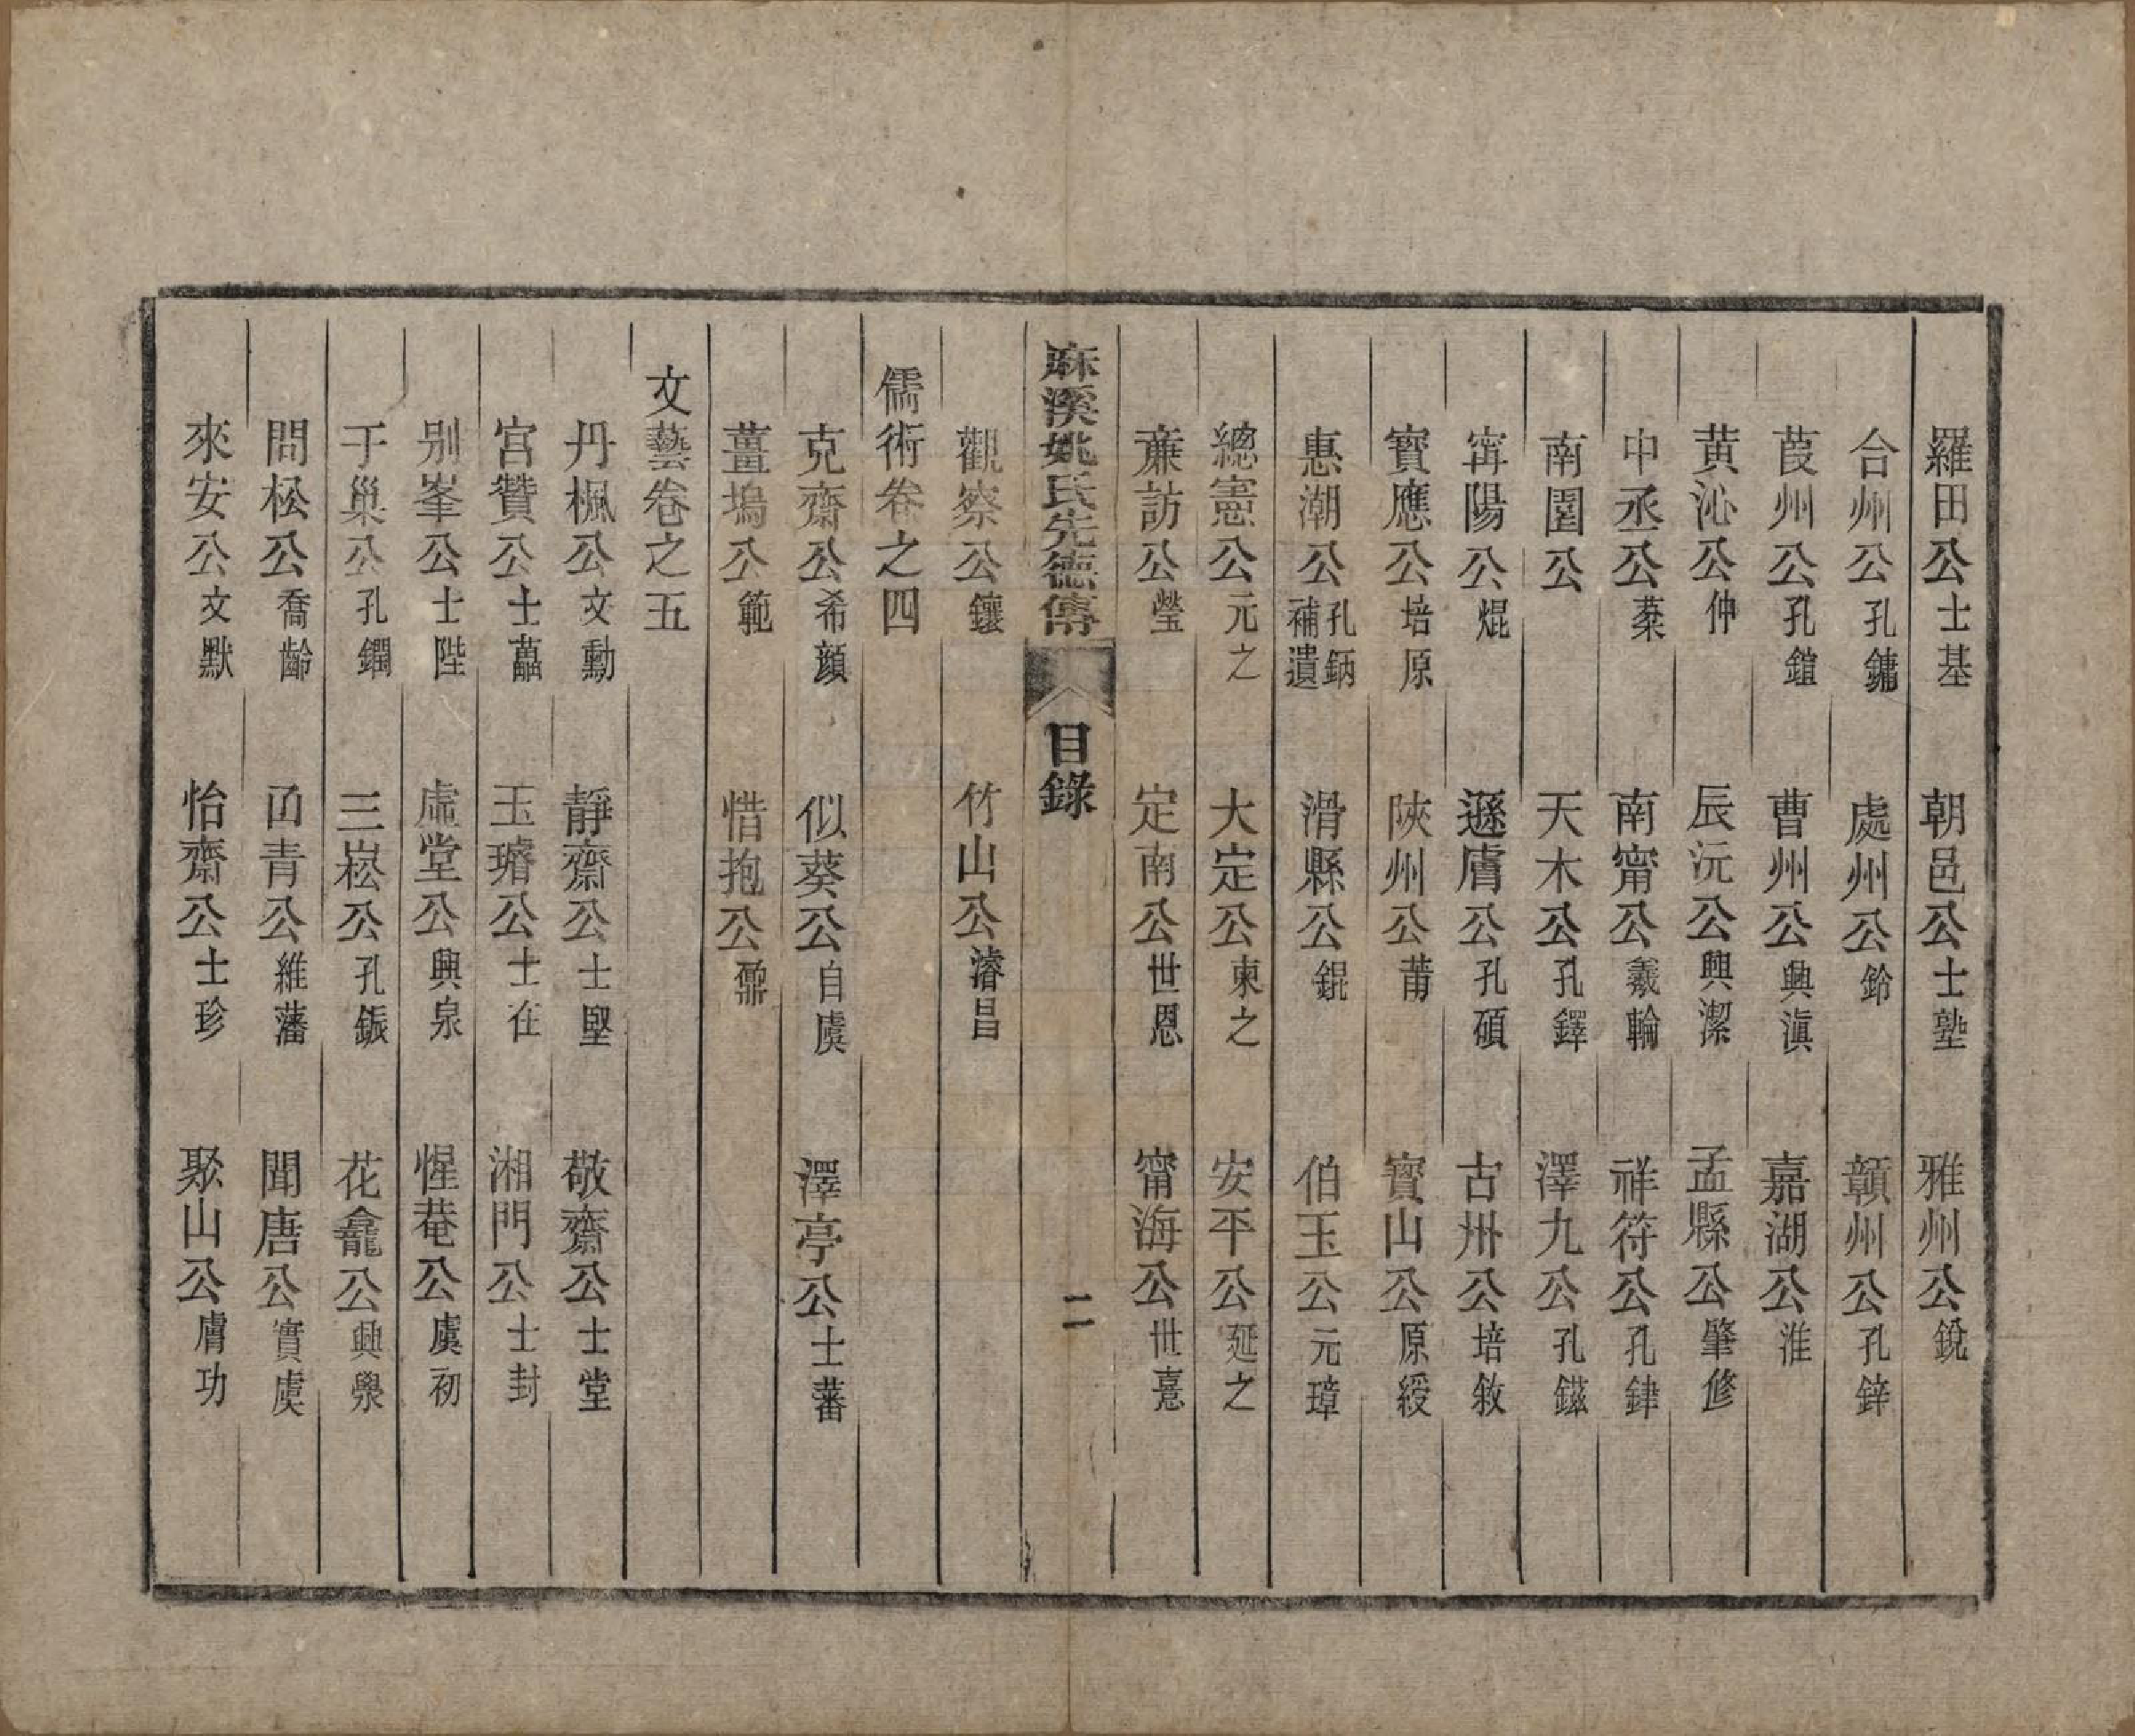 羅田公士基　朝邑公士塾　雅州公銳
合州公孔鏞　處州公鈴　贛州公孔鋅
葭州公孔鍹　曹州公興滇　嘉湖公淮
黃沁公仲　辰沅公興潔　孟縣公肇修
中丞公棻　南甯公羲輪　祥符公孔銉
南園公　天木公孔鐸　澤九公孔鎡
甯陽公焜　遜膚公孔碩　古州公培敘
寶應公培原　陝州公莆　寶山公原綬
惠潮公孔鈵補遺　滑縣公錕　伯玉公元璋
總憲公元之　大定公柬之　安平公延之
廉訪公瑩　定南公世恩　甯海公世憙
麻溪姚氏先德傳　目錄　二
觀察公鑲　竹山公濬昌
儒術卷之四
克齋公希顏　似葵公自虞　澤亭公士蕃
薑塢公範　惜抱公鼐
文藝卷之五
丹楓公文勳　靜齋公士堅　敬齋公士堂
宮贊公士藟　玉璿公士在　湘門公士封
別峯公士陛　虛堂公興泉　惺菴公虞初
于巢公孔鐗　三崧公孔鋠　花龕公興㶟
問松公喬齡　卣青公維藩　聞唐公實虞
來安公文默　怡齋公士珍　聚山公膚功